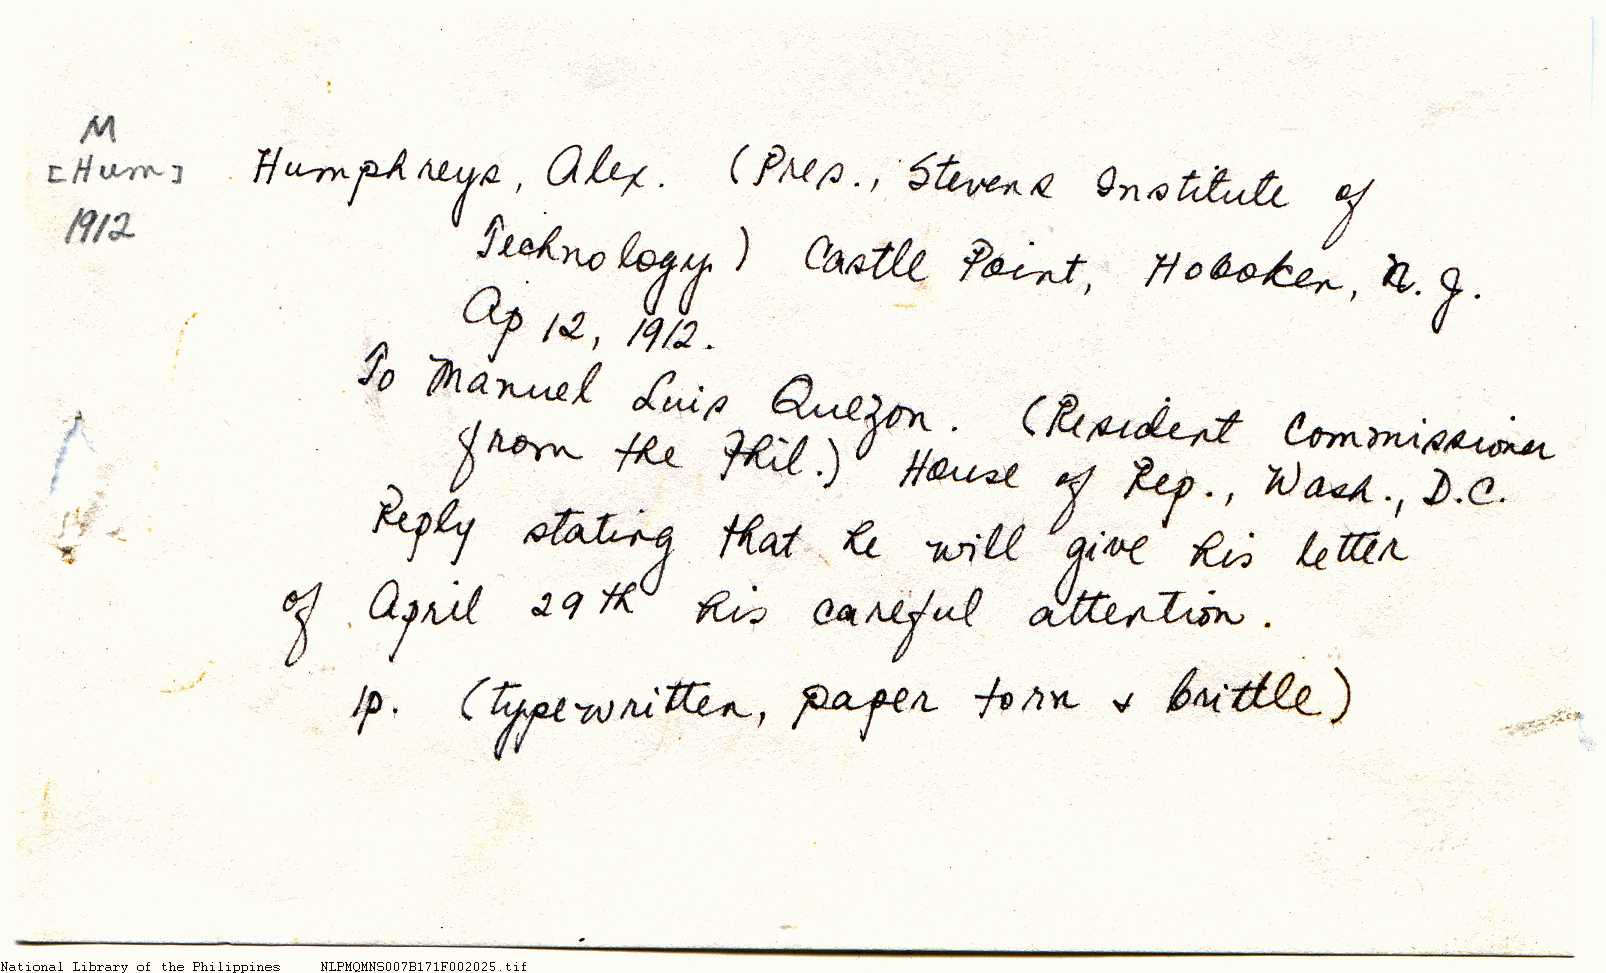 M
[Hum]
1912
Humphreys, Alex. (Pres., Stevens Institute of
Technology) Castle Point, Hoboken, N. J.
Ap 12, 1912.
To Manuel Luis Quezon. (Resident Commissioner
from the Phil.) House of Rep., Wash., D.C.
Reply stating that he will give his letter
of April 29th his careful attention.
1p. (typewritten, paper torn & brittle)
National Library of the Philippines NLPMQMNS007B171F002025.tif